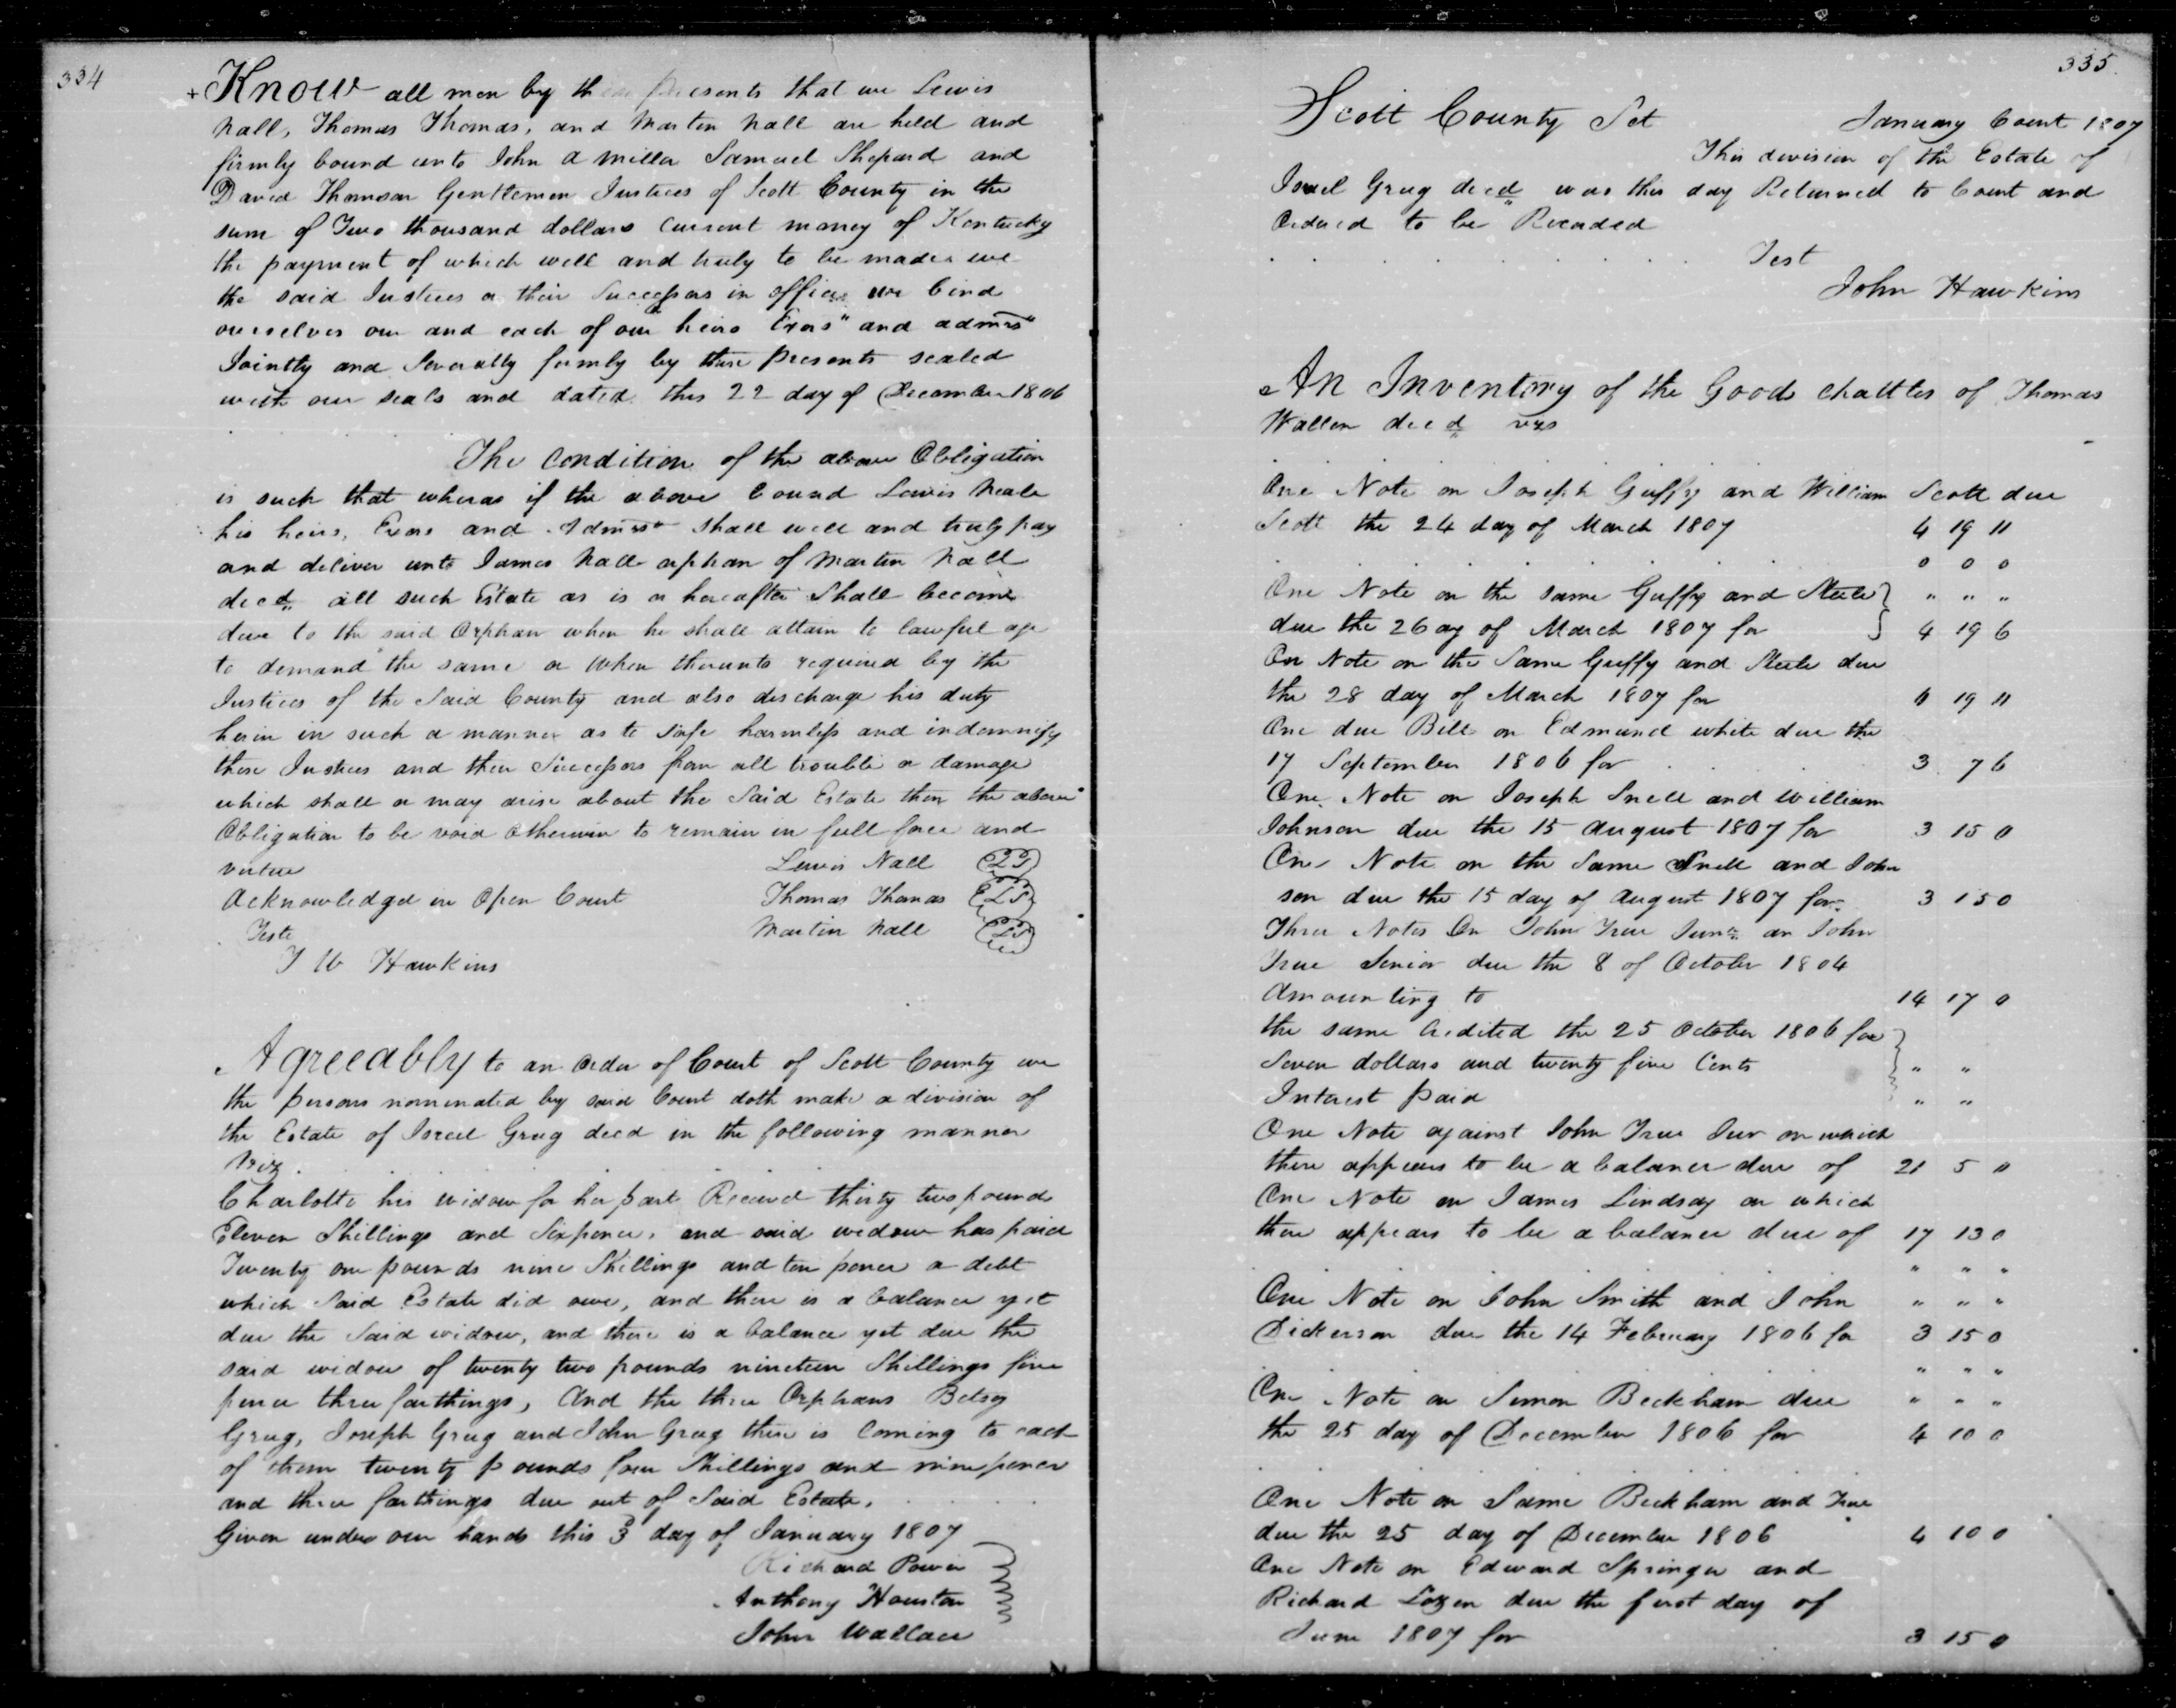 334
Know all men by these presents that we Lewis
Nall, Thomas Thomas, and Martin Nall are held and
firmly bound unto John A Miller Samuel Shepard and
David Thomson Gentlemen Justices of Scott County in the
sum of Two thousand dollars current money of Kentucky
the payment of which well and truly to be made we
the said Justices or their Successors in office we bind
ourselves our and each of our heirs Exors" and admrs"
Jointly and Severally formly by these presents sealed
with our seals and dated this 22 day of December 1806
The Condition of the above Obligation
is such that wheras if the above bound Lewis Neale
his heirs, Exors and Admrs shall well and truly pay
and deliver unto James Nall orphan of Martin Nall
decd, all such Estate as is or hereafter Shall become
due to the said Orphan when he shall attain to lawful age
to demand the same or When thereunto required by the
Justices of the Said County and also discharge his duty
herin in such a manner as to safe harmless and indemnify
these Justices and their Successors from all trouble or damage
which shall or may arise about the Said Estate then the above
Obligation to be void otherwise to remain in full force and
virtue Lewis Nall LS
Acknowledged in Open Court Thomas Thomas LS
Teste Martin Nall LS
J W Hawkins
Agreeably to an order of Court of Scott County we
the persons nominated by said Court doth make a division of
the Estate of Isreel Grug decd in the following manner
Viz
Charlotte his widow for her part Received thirty two pound
Eleven Shillings and Sixpence, and said widow has paid
Twenty one pounds nine Shillings and ten pence a debt
which Said Estate did owe, and there is a balance yet
due the Said widow, and there is a balance yet due the
said widow of twenty two pounds nineteen Shillings five
pence three farthings, And the three Orphans Betsy
Grug, Joseph Grug and John Grug there is Coming to each
of them twenty pounds four Shillings and nine pence
and three farthings due out of Said Estate.
Given under our hands this 3 day of January 1807
Richard Power
Anthony Houston
John Wallace
335.
Scott County Sct January Court 1807
This division of the Estate of
Israel Grug decd was this day Returned to Court and
Ordered to be Recorded
Test
John Hawkins
An Inventory of the Goods chattles of Thomas
Wallen decd vzs
One Note on Joseph Guffy and William Scott due
Scott the 24 day of March 1807 4 19 11
0 0 0
One Note on the same Guffy and Steele } " " "
due the 26 ay of March 1807 for 4 19 6
On Note on the Same Guffy and Steele due
the 28 day of March 1807 for 4 19 11
One due Bill on Edmund white due the
17 September 1806 for 3 7 6
One Note on Joseph Snell and William
Johnson due the 15 August 1807 for 3 15 0
One Note on the Same Snell and John
son due the 15 day of August 1807 for 3 15 0
Three Notes On John True Junr an John
True Senior due the 8 of October 1804
Amounting to 14 17 0
the same Credited the 25 October 1806 for }
Seven dollars and twenty five Cents " "
Interest paid " "
One Note against John True Junr on which
there appears to be a balance due of 21 5 0
One Note on James Lindsay on which
there appears to be a balance due of 17 13 0
" " "
One Note on John Smith and John " " "
Dickerson due the 14 February 1806 for 3 15 0
" " "
One Note on Simon Beckham due " " "
the 25 day of December 1806 for 4 10 0
One Note on Same Beckham and True
due the 25 day of December 1806 4 10 0
One Note on Edward Springer and
Richard due the first day of
June 1807 for 3 15 0